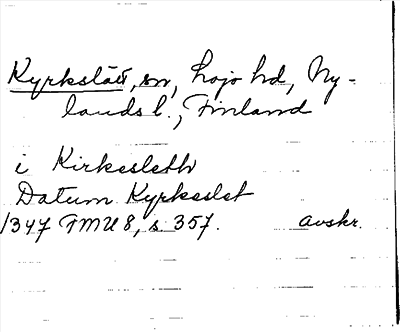 Kyrkslätt, sn, Lojo hd, Ny-
lands l., Finland
i Kirkesleth
Datum Kyrkeslet
1347 FMU 8, s. 357. avskr.